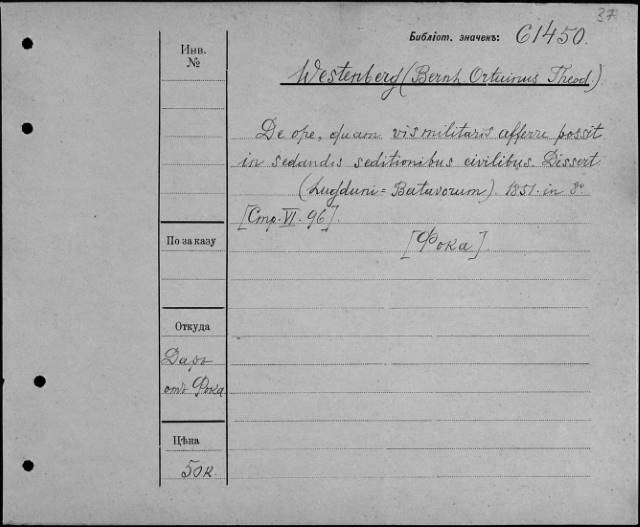 37
Библіот. значекъ: C1450.
Инв.
№
Westenberg (Bernh. Ortuinus Theod.)
De ope, quam vis militaris afferre possit
in sedandis seditionibus civilibus. Dissert.
(Lugduni = Batavorum). 1851. in 8º
[Стр. VI. 96].
[Фока].
По заказу
Откуда
Даръ
отъ Фока
Цѣна
50к.